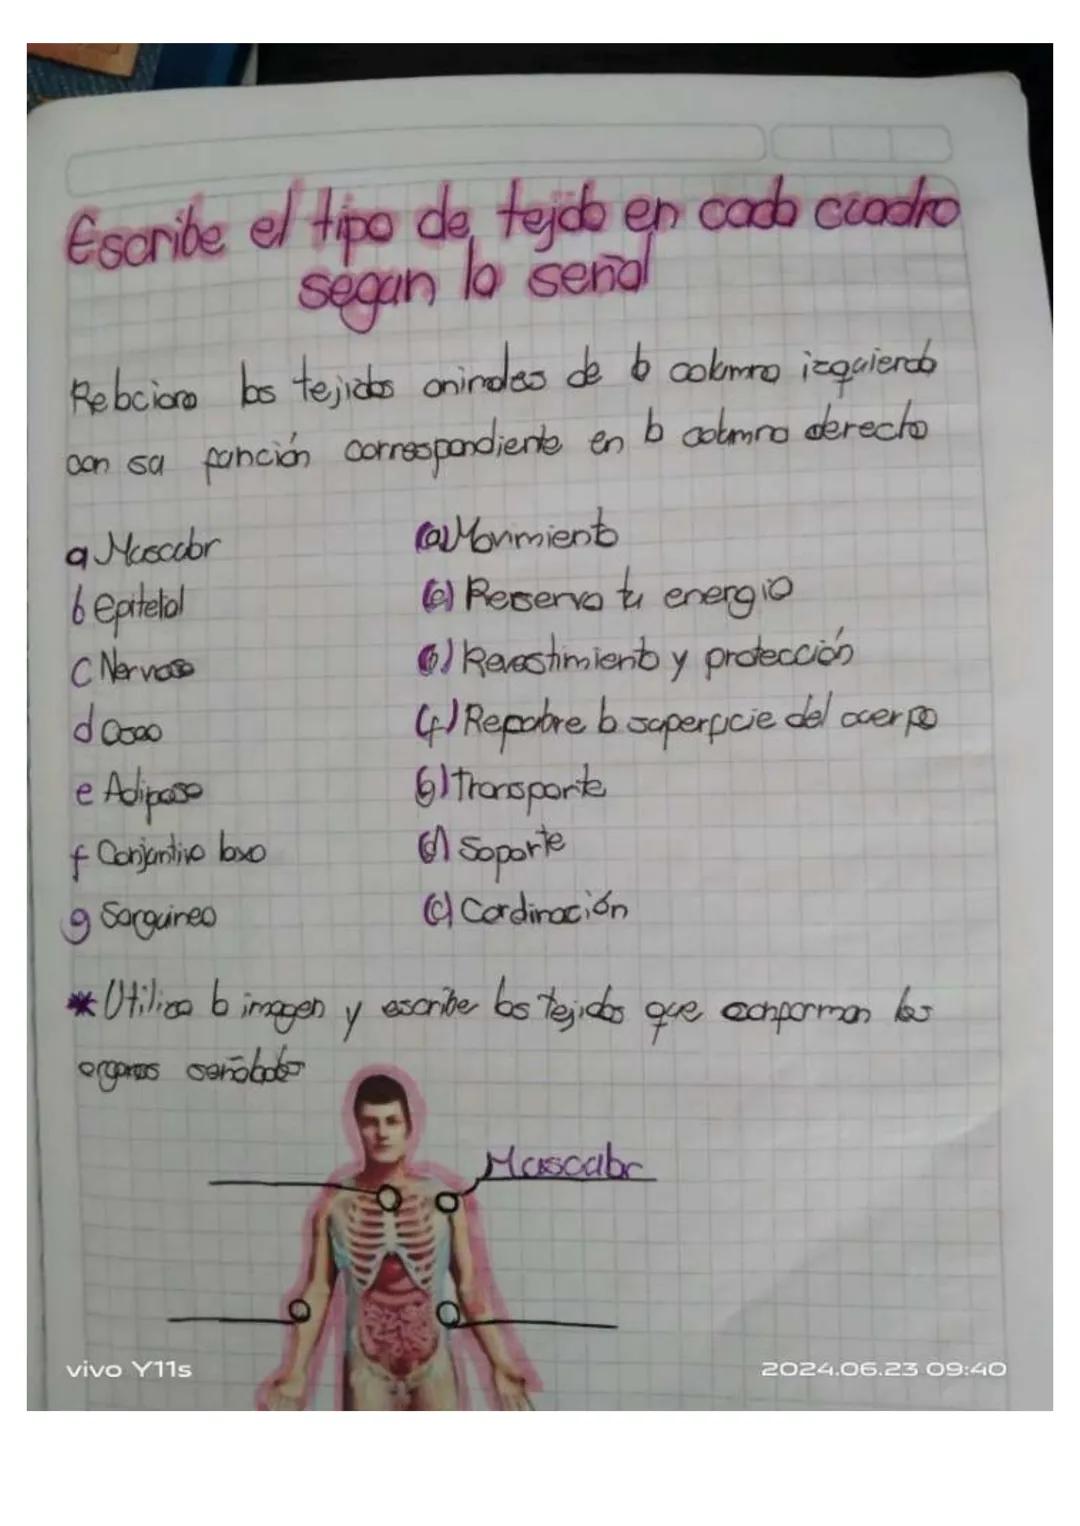 Escribe el tipo de tejido en cada cuadro
segun la señal
Relaciona los tejidos animales de la columna izquierda
con su función correspondiente en la columna derecha
a Muscular
(a) Movimiento
b epitelial
(e) Reserva tu energia
c Nervoso
(b) Revestimiento y protección
d Oseo
(f) Recubre la superficie del cuerpo
e Adiposo
(g) Transporte
f Conjuntivo laxo
(d) Soporte
g Sanguineo
(c) Cordinación
* Utiliza la imagen y escribe los tejidos que conforman los
organos señalados
Muscular
vivo Y11s
2024.06.23 09:40